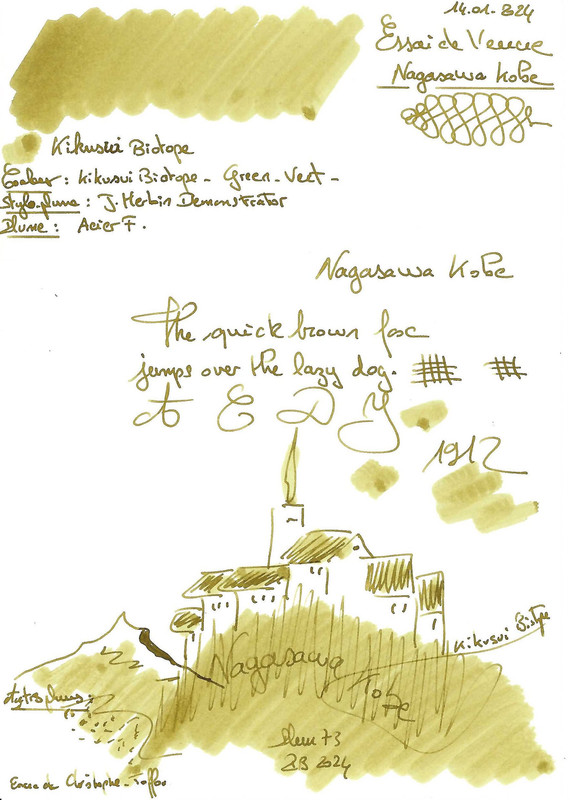 14.01.2024
Essai de Venue
Nagasawa Kobe
Kikusui Biotope
Couleur : Kikusui Biotope - Green - Vert -
Stylo-plume : J. Herbin Demonstrator
Plume : Acier F.
Nagasawa Kobe
The quick brown fox
jumps over the lazy dog.
A E D Y
1912
Kikusui Biotope
Nagasawa
Kobe
Stylos plumes :
73
2024
Encre de Christophe